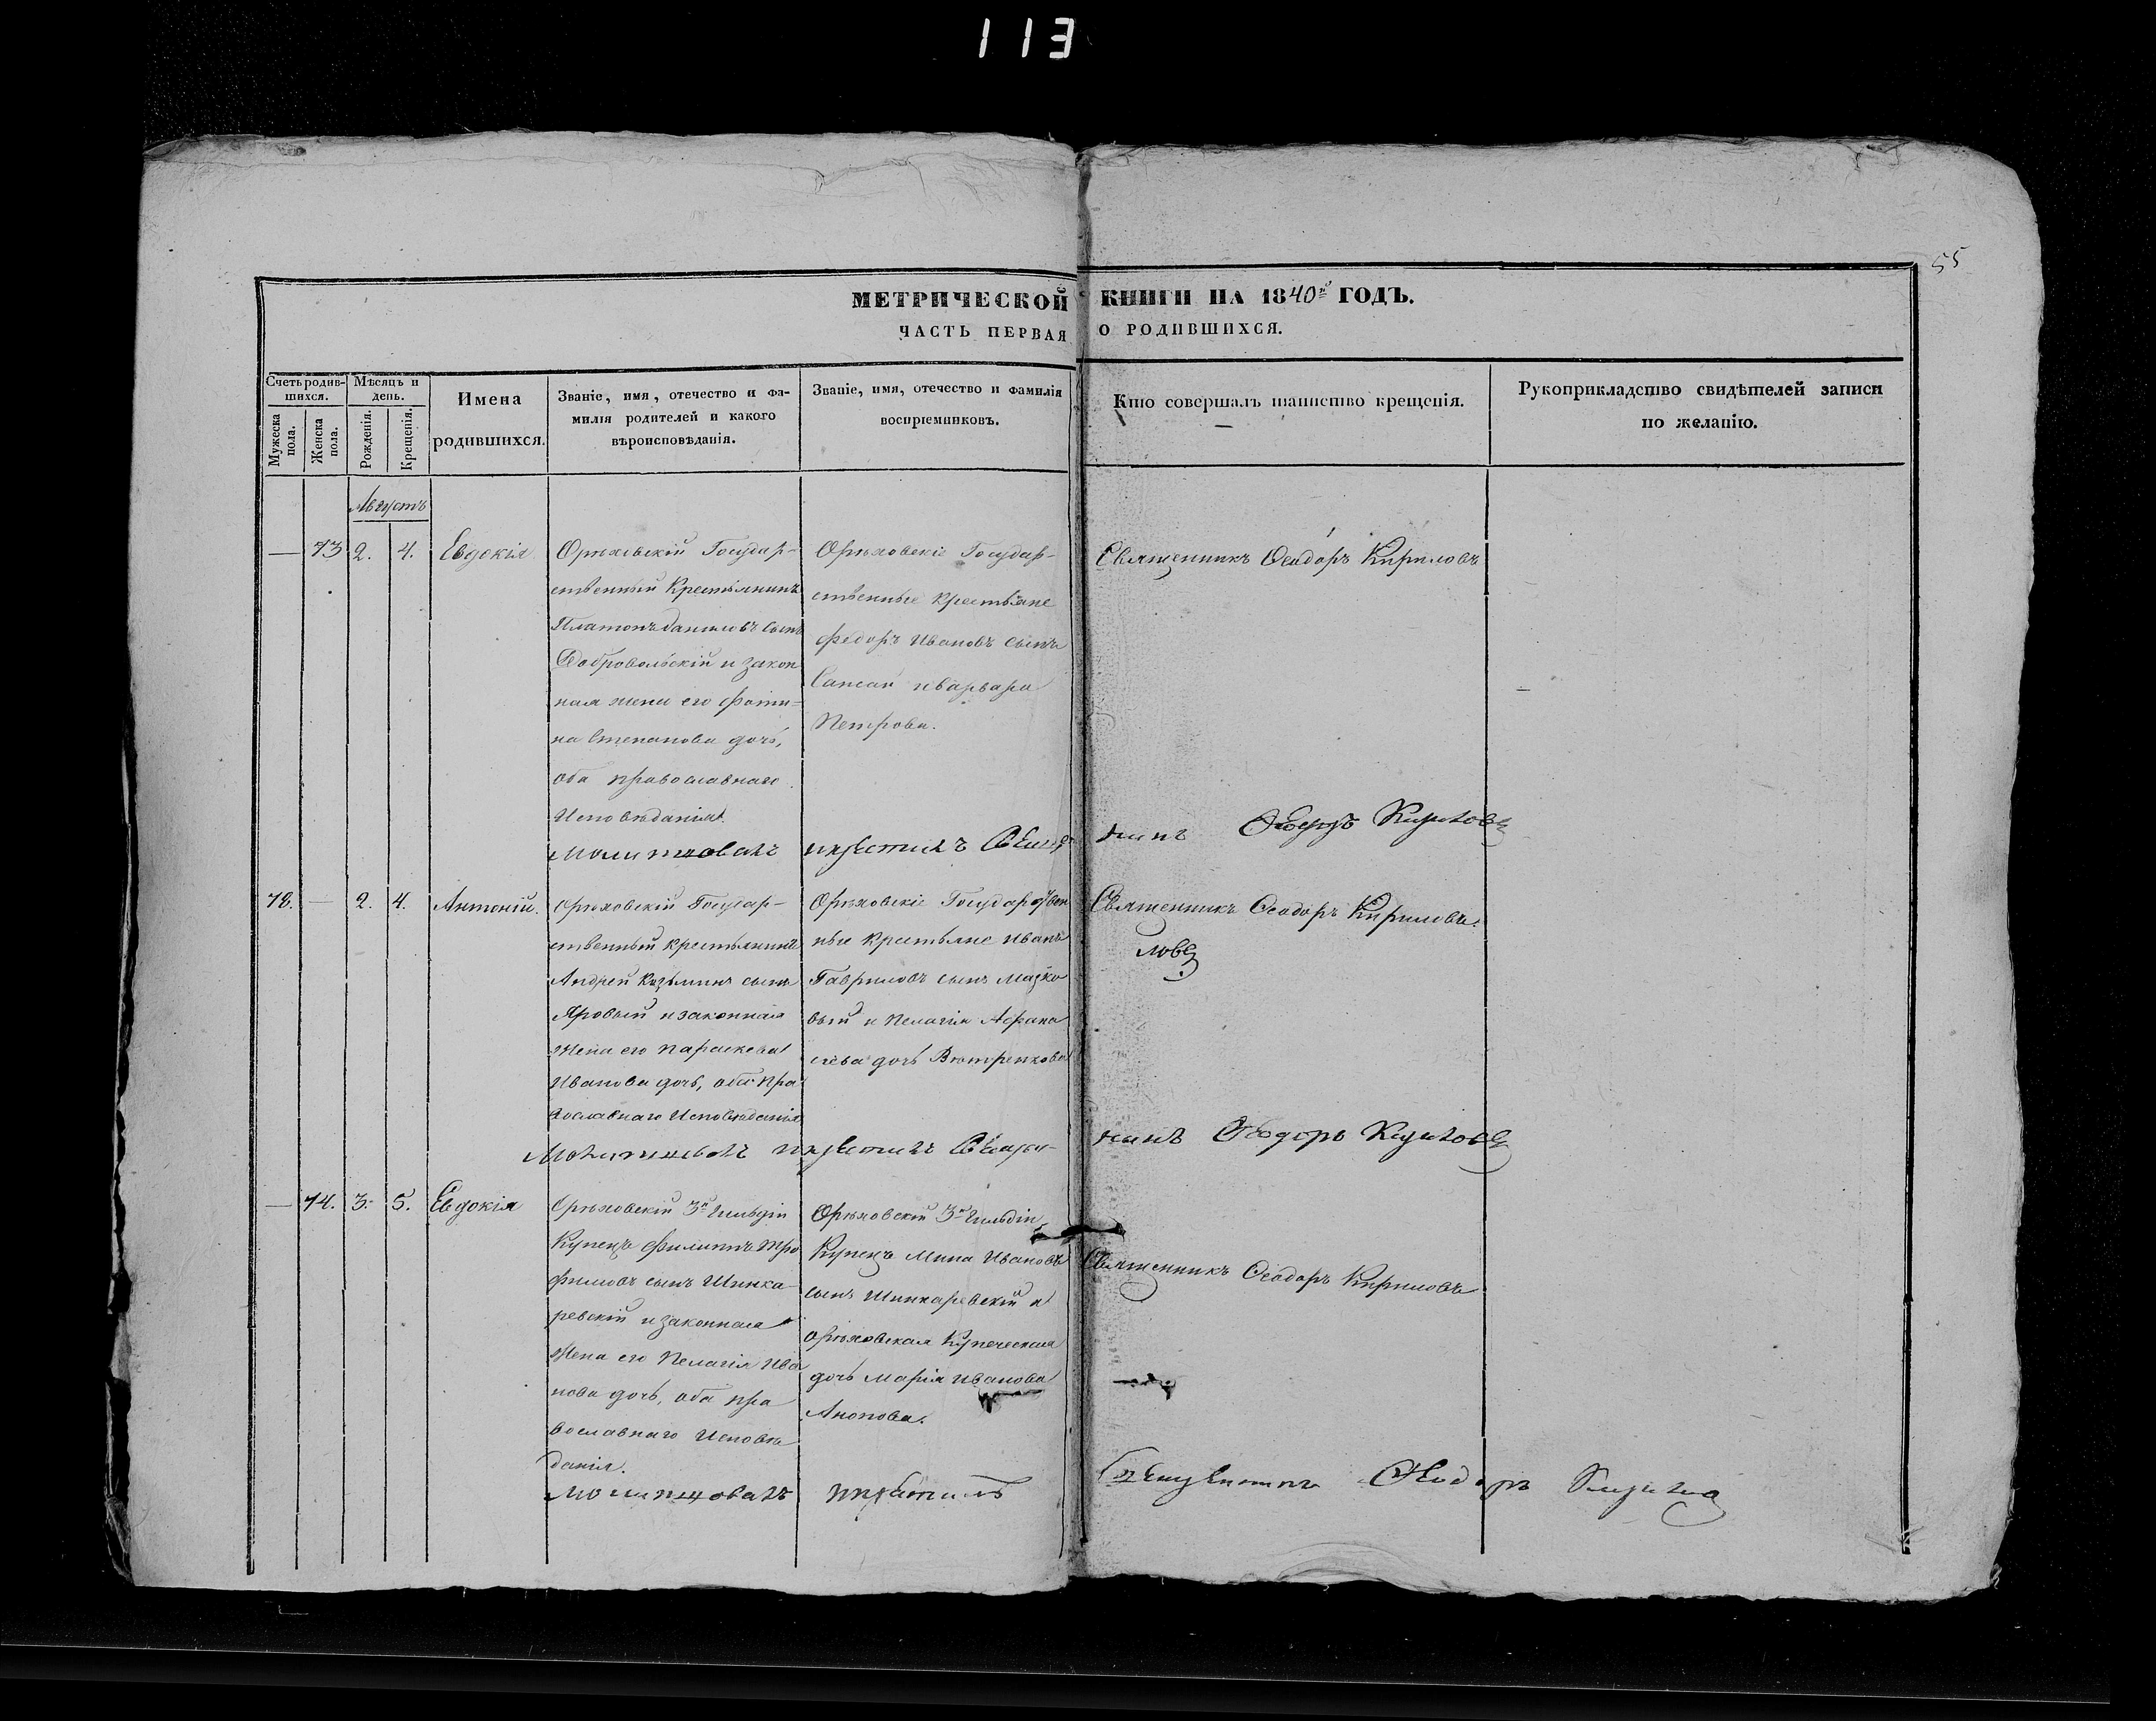 113
55
МЕТРИЧЕСКОЙ КНИГИ НА 1840й ГОДЪ.
ЧАСТЬ ПЕРВАЯ О РОДИВШИХСЯ.
Счетъ родив-
шихся.
Мужеска пола.
Женска пола.
Мѣсяцъ и
день.
Рожденія.
Крещенія.
Имена
родившихся.
Званіе, имя, отечество и фа-
милія родителей и какого
вѣроисповѣданія.
Званіе, имя, отечество и фамилія
воспріемниковъ.
Кто совершалъ таинство крещенія.
Рукоприкладство свидѣтелей записи
по желанію.
Августъ
— 73 2. 4. Евдокія
Орѣховскій Государ-
ственный Крестьянинъ
Платонъ Даниловъ сынъ
Добровольскій и закон
ная жена его Фоти-
на Степанова дочь,
оба православнаго
Исповѣданія.
Орѣховскіе Государ-
ственные Крестьяне
Федоръ Ивановъ сынъ
и Варвара
Петрова.
Священникъ Феодоръ Кириловъ
Молитвовалъ и крестилъ Священ
никъ Феодоръ Кириловъ
78. — 2. 4. Антоній.
Орѣховскій Государ-
ственный крестьянинъ
Андрей Козьминъ сынъ
Яровый и законная
жена его Параскева
Иванова дочь, оба пра
вославнаго Исповѣданія
Орѣховскіе Государствен
ные крестьяне Иванъ
Гавриловъ сынъ Мазко
вый и Пелагія Афана
сіева дочь
Священникъ Феодоръ Кириловъ.
ловъ
Молитвовалъ и крестилъ Священ-
никъ Феодоръ Кириловъ
— 74. 3. 5. Евдокія
Орѣховскій 3й Гильдіи
Купецъ Филиппъ Тро
фимовъ сынъ Шинка-
ревскій и законная
жена его Пелагія Ива
нова дочь, оба пра
вославнаго Исповѣ
данія.
Орѣховскій 3й Гильдіи
Купецъ Мина Ивановъ
сынъ Шинкаревскій и
орѣховская Купеческая
дочь Марія Иванова
Анопова.
Священникъ Феодоръ Кириловъ
Молитвовалъ и крестилъ
Священникъ Феодоръ Кирилов